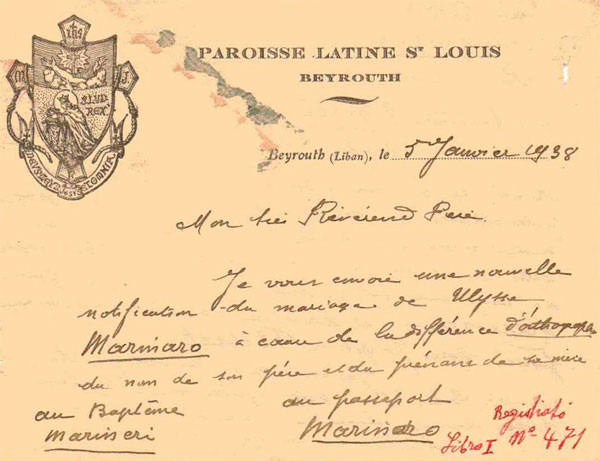 IHS
M
J
S.LUD.
REX
PAROISSE LATINE Sᵗ LOUIS
BEYROUTH
Beyrouth (Liban), le 5 Janvier 1938
Mon très Révérend Père.
Je vous envoie une nouvelle
notification du mariage de Ulysse
Marinaro à cause de la différence d'orthographe
du nom de son père et du prénom de sa mère
au Baptême
Marineri
au passeport
Marinaro
Registrato
Libro I Nº 471